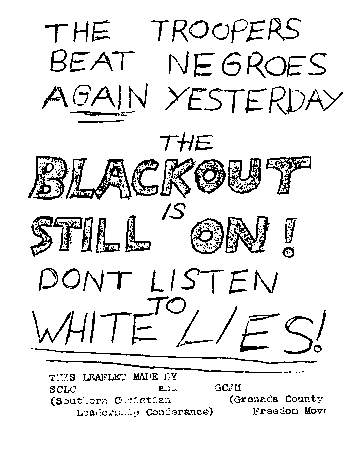 THE TROOPERS
BEAT NEGROES
AGAIN YESTERDAY
THE
BLACKOUT
IS
STILL ON!
DONT LISTEN
TO
WHITE LIES!
THIS LEAFLET MADE BY
SCLC and GCFM
(Southern Christian (Grenada County
Leadership Conferance) Freedom Mov